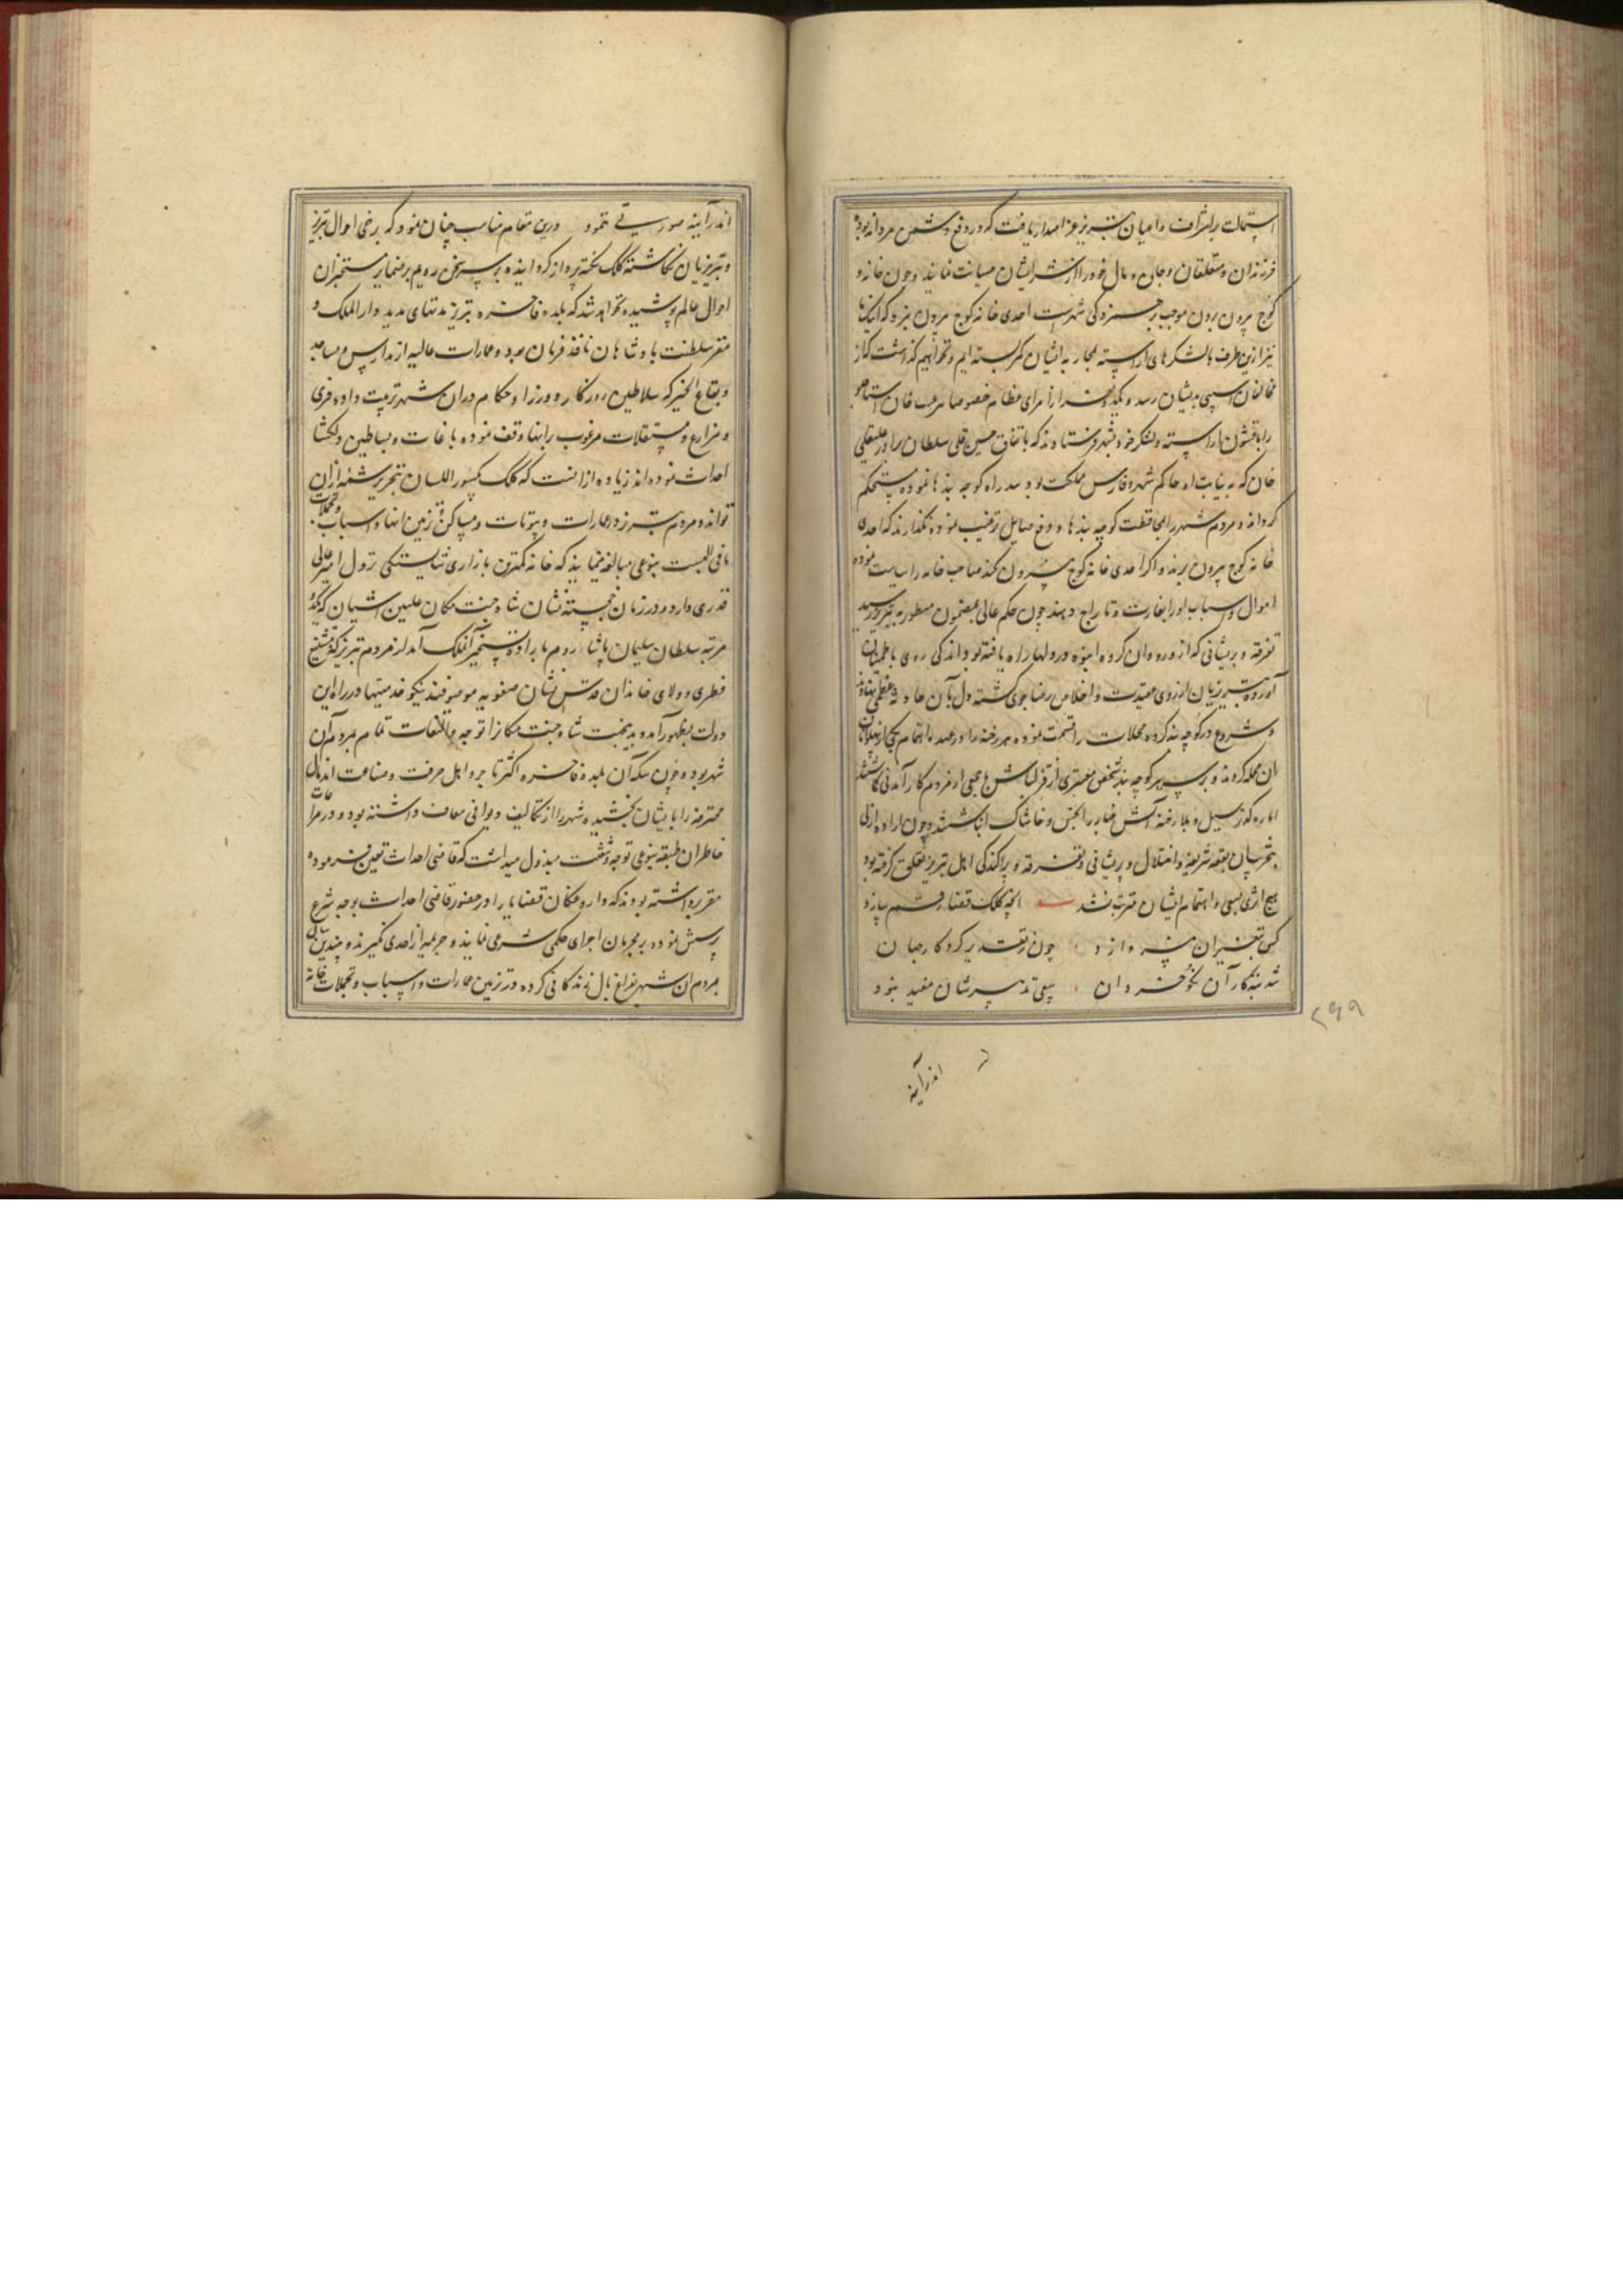 استمالت باشراف و اعیان تبریز عز اصدار یافت که در دفع دشمن مردانه بوده
فرزندان و متعلقان و جان و مال خود را از شر ایشان صیانت نمایند و چون خانه و
کوچ بیرون بردن موجب برهمزدگی شهرست احدی خانه کوچ بیرون نبرد که
نیز ازین طرف بالشکرهای آراسته بمحاربه ایشان کمر بسته ایم و نخواهیم گذاشت که از
مخالفان آسیبی بدیشان رسد و یکدو نفر از امرای عظام خصوصا پیرغیب خان استاجلو
را باقشون آراسته و لشکر خود بشهر فرستادند که باتفاق حسین قلی سلطان برادر علیقلی
خان که به نیابت او حاکم شهر و فارس مملکت بود سد راه کوچه بندها نموده مستحکم
گردانند و مردم شهر را بمحافظت کوچه بندها و دفع مسایل ترغیب نموده نگذارند که احدی
خانه کوچ بیرون برند و اگر احدی خانه کوچ بیرون کند صاحب خانه را سیاست نموده
اموال و اسباب او را بغارت و تاراج دهند چون حکم عالی بمضمون مسطور به تبریز رسید
تفرقه و پریشانی که از ورود آن گروه انبوه در دلها راه یافته بود اندکی روی باطمینان
آورده تبریزیان از روی عقیدت و اخلاص رضا جوی گشته دل بآن حادثه عظمی نهادند
و شروع در کوچه بند کرده محلات را قسمت نموده هر رخنه را در عهده اهتمام یکی از پهلوانان
آن محله کردند و بر سر هر کوچه بند شخص معتبری از قزلباش با جمعی از مردم کارآمدنی گماشتند
اما ره گذر سیل و بلا رخنه آتش فنا بر را بخس و خاشاک انباشتند و چون اراده ازلی
بتخریب آن بقعه شریفه و اختلال و پریشانی و تفرقه و پراکندگی اهل تبریز تعلق گرفته بود
هیچ اثری بسعی و اهتمام ایشان مترتب نشد آنچه کلک قضا رقم سازد
کس بتغییر آن نپردازد چون ز تقدیر کردگار جهان
شد تبه کار آن نکو خردان سعی تدبیرشان مفید نبود
۲۹۹
اندر آینه
اندر آینه صورتی ننمود درین مقام مناسب چنان نمود که برخی احوال تبریز
و تبریزیان نگاشته کلک نکته پرداز گردانیده بر سر سخن رویم بر ضمایر مستخبران
احوال عالم پوشیده نخواهد شد که بلده فاخره تبریز مدتهای مدید دار الملک و
مقر سلطنت پادشاهان نافذ فرمان بود و عمارات عالیه از مدارس و مساجد
و بقاع الخیر که سلاطین روزگار و وزرا و حکام در آن شهر ترتیب داده قری
و مزارع و مستغلات مرغوب بر آنها وقف نموده باغات و بساطین دلگشا
احداث نموده اند زیاده از آنست که کلک مکسور اللسان بتحریر شمه از آن
تواند و مردم تبریز در عمارات و بیوتات و مساکن و تزیین آنها و اسباب و تجملات
مافی البیت بنوعی مبالغه مینمایند که خانه کمترین بازاری شایستگی نزول امیر عالی
قدری دارد و در زمان خجسته نشان شاه جنت مکان علیین آشیان که یکدو
مرتبه سلطان سلیمان پادشاه روم باراده تسخیر آن ملک آمد از مردم تبریز که بتشیع
فطری و ولای خاندان قدس نشان صفویه موصوفند نیکو خدمتیها در راه این
دولت بظهور آمد و بدینجهت شاه جنت مکان را توجه و التفات تمام بمردم آن
شهر بود و چون سکنه آن بلده فاخره اکثر تاجر و اهل حرفت و صناعت اند مال
محترفه را بایشان بخشیده شهر را از تکالیف دیوانی معاف داشته بود و در مراعات
خاطر آن طبقه بنوعی توجه و شفقت مبذول میداشت که قاضی احداث تعیین فرموده
مقرر داشته بودند که داروغگان قضایا را در حضور قاضی احداث بوجه شرع
پرسش نموده بر مجرمان اجرای حکم شرعی نمایند و جریمه از احدی نگیرند و چندین سال
مردم آن شهر بفراغ بال زندگانی کرده در تزیین عمارات و اسباب و تجملات خانه